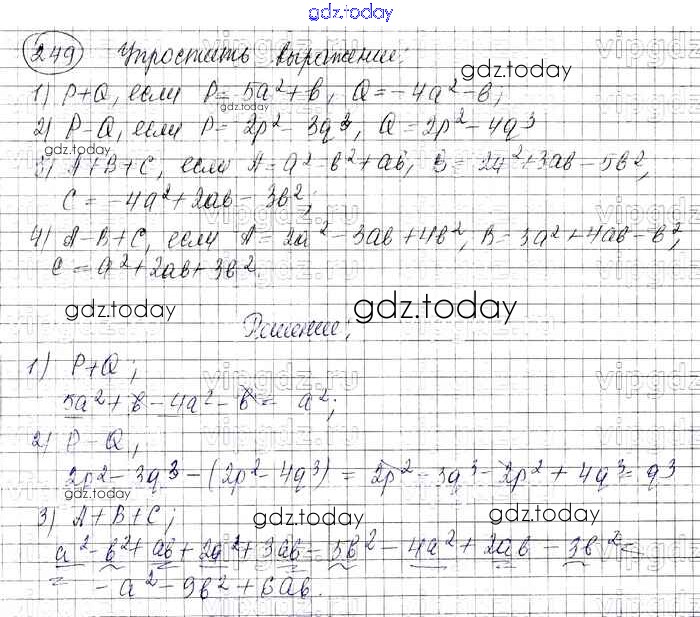 gdz.today
249 Упростить выражение:
gdz.today
1) P+Q, если P = 5a²+b, Q = -4a²-b;
gdz.today
2) P-Q, если P = 2p² - 3q³, Q = 2p² - 4q³
gdz.today
3) A+B+C, если A = a² - b² + ab, B = 2a² + 3ab - 5b²,
C = -4a² + 2ab - 3b²;
4) A-B+C, если A = 2a² - 3ab + 4b², B = 3a² + 4ab - b²,
C = a² + 2ab + 3b².
gdz.today gdz.today
Решение:
1) P+Q;
5a² + b - 4a² - b = a²;
2) P-Q;
2p² - 3q³ - (2p² - 4q³) = 2p² - 3q³ - 2p² + 4q³ = q³
gdz.today
3) A+B+C;
gdz.today gdz.today
a² - b² + ab + 2a² + 3ab - 5b² - 4a² + 2ab - 3b² =
= -a² - 9b² + 6ab.
vipgdz.ru